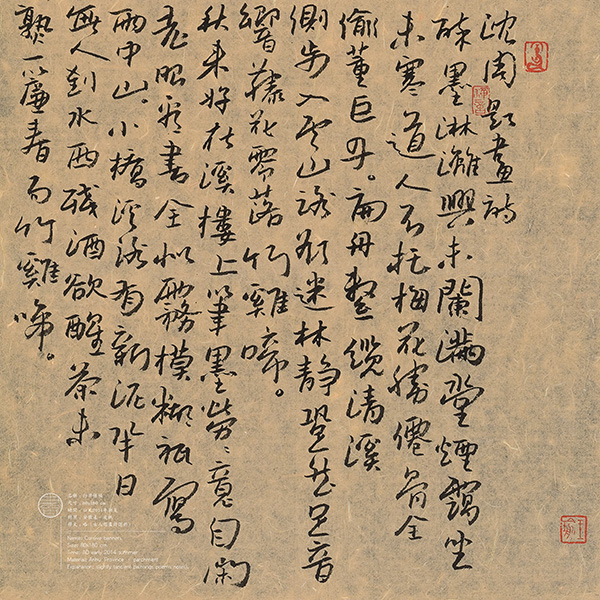 沈周題畫詩
醉墨淋漓興未闌滿堂煙靄坐
未寒道人不托梅花勝僊骨全
偷董巨丹。扁舟繫纜清溪
側步入雲山路欲迷林静然足音
響藤花零落竹雞啼。
秋来好在溪樓上筆墨勞〻意自閑
老眼看書全似霧模糊祇寫
雨中山。小橋溪路有新泥半日
無人到水西殘酒欲醒茶未
熟一簾春雨竹雞啼。